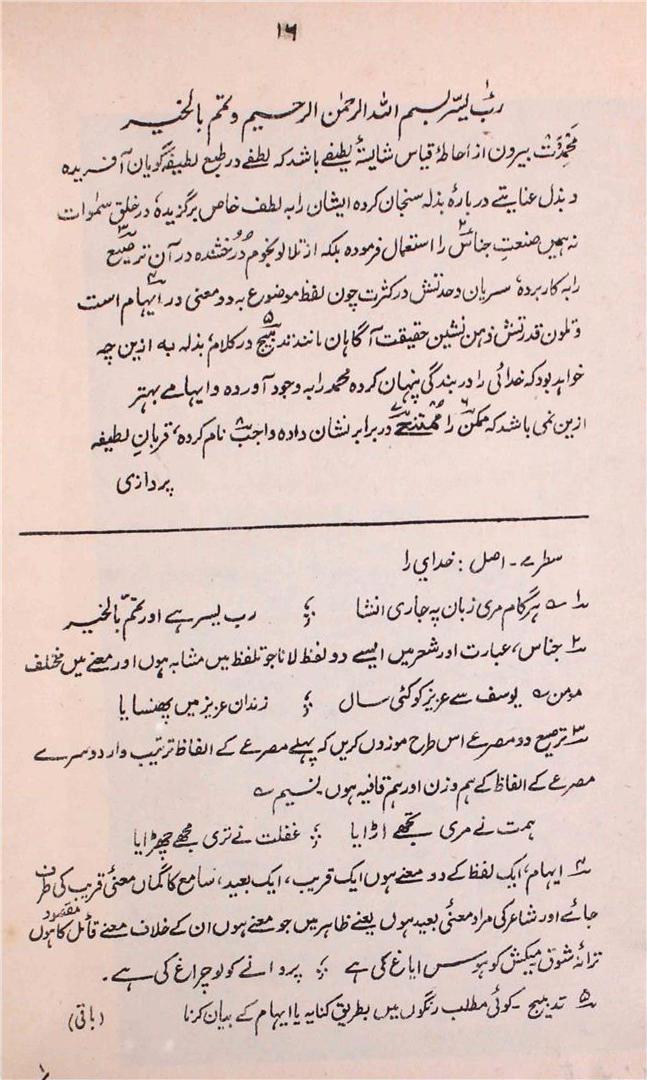 ۱۶
ربّ یسّر بسم اللہ الرحمٰن الرحیم و تمّم بالخیر
محمدتْ بیرون از احاطۂ قیاس شایستۂ لطیفے باشد کہ لطفے در طبع لطیفہ گویان آفریدہ
و بذل عنایتے دربارۂ بذلہ سنجان کردہ ایشان را بہ لطف خاص برگزیدہ، در خلق سمٰوات
نہ ہمیں صنعتِ جناس۲ را استعمال فرمودہ بلکہ از تلالو نجوم درخشندہ در آن ترصیع۳
را بکار بردہ، سریان وحدتش در کثرت چون لفظ موضوع بہ دو معنی در ایہام۴ است
و تلون قدرتش ذہن نشین حقیقت آگاہان مانند تدبیج۵ در کلام، بذلہ بہ ازین چہ
خواہد بود کہ خدائی را در بندگی پنہان کردہ محمد را بہ وجود آوردہ و ایہامے بہتر
ازین نمی باشد کہ ممکن۶ را ممتنع۷ در برابر نشان دادہ واجب۸ نام کردہ، قربان لطیفہ
پردازی
سطر ۷ ۔ اصل : خدایی را
۱؎ ؎ ہر گام مری زبان پہ جاری انشا ؛ رب یسر ہے اور تمّم بالخیر
۲؎ جناس، عبارت اور شعر میں ایسے دو لفظ لانا جو تلفظ میں مشابہ ہوں اور معنے میں مختلف
مومن ؎ یوسف سے عزیز کو کئی سال ؛ زندان عزیز میں پھنسایا
۳؎ ترصیع دو مصرعے اس طرح موزوں کریں کہ پہلے مصرعے کے الفاظ ترتیب وار دوسرے
مصرعے کے الفاظ کے ہم وزن اور ہم قافیہ ہوں نسیم ؎
ہمت نے مری تجھے اڑایا ؛ غفلت نے تری مجھے چھڑایا
۴؎ ایہام، ایک لفظ کے دو معنے ہوں ایک قریب، ایک بعید، سامع کا گماں معنیٔ قریب کی طرف
جائے اور شاعر کی مراد معنیٔ بعید ہوں یعنے ظاہر میں جو معنے ہوں ان کے خلاف معنے قائل کا مقصود ہوں
ترانۂ شوق میکش کو ہوس ایاغ کی ہے ؛ پروانے کو لو چراغ کی ہے ۔
۵؎ تدبیج ۔ کوئی مطلب رنگوں میں بطریق کنایہ یا ایہام کے بیان کرنا (باقی)